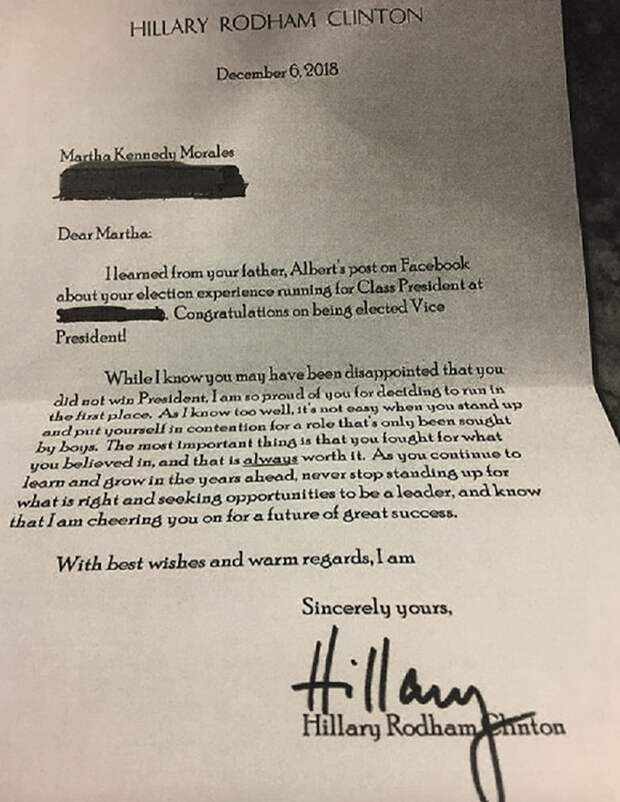 HILLARY RODHAM CLINTON
December 6, 2018
Martha Kennedy Morales
Dear Martha:
I learned from your father, Albert's post on Facebook
about your election experience running for Class President at
. Congratulations on being elected Vice
President!
While I know you may have been disappointed that you
did not win President, I am so proud of you for deciding to run in
the first place. As I know too well, it's not easy when you stand up
and put yourself in contention for a role that's only been sought
by boys. The most important thing is that you fought for what
you believed in, and that is always worth it. As you continue to
learn and grow in the years ahead, never stop standing up for
what is right and seeking opportunities to be a leader, and know
that I am cheering you on for a future of great success.
With best wishes and warm regards, I am
Sincerely yours,
Hillary
Hillary Rodham Clinton